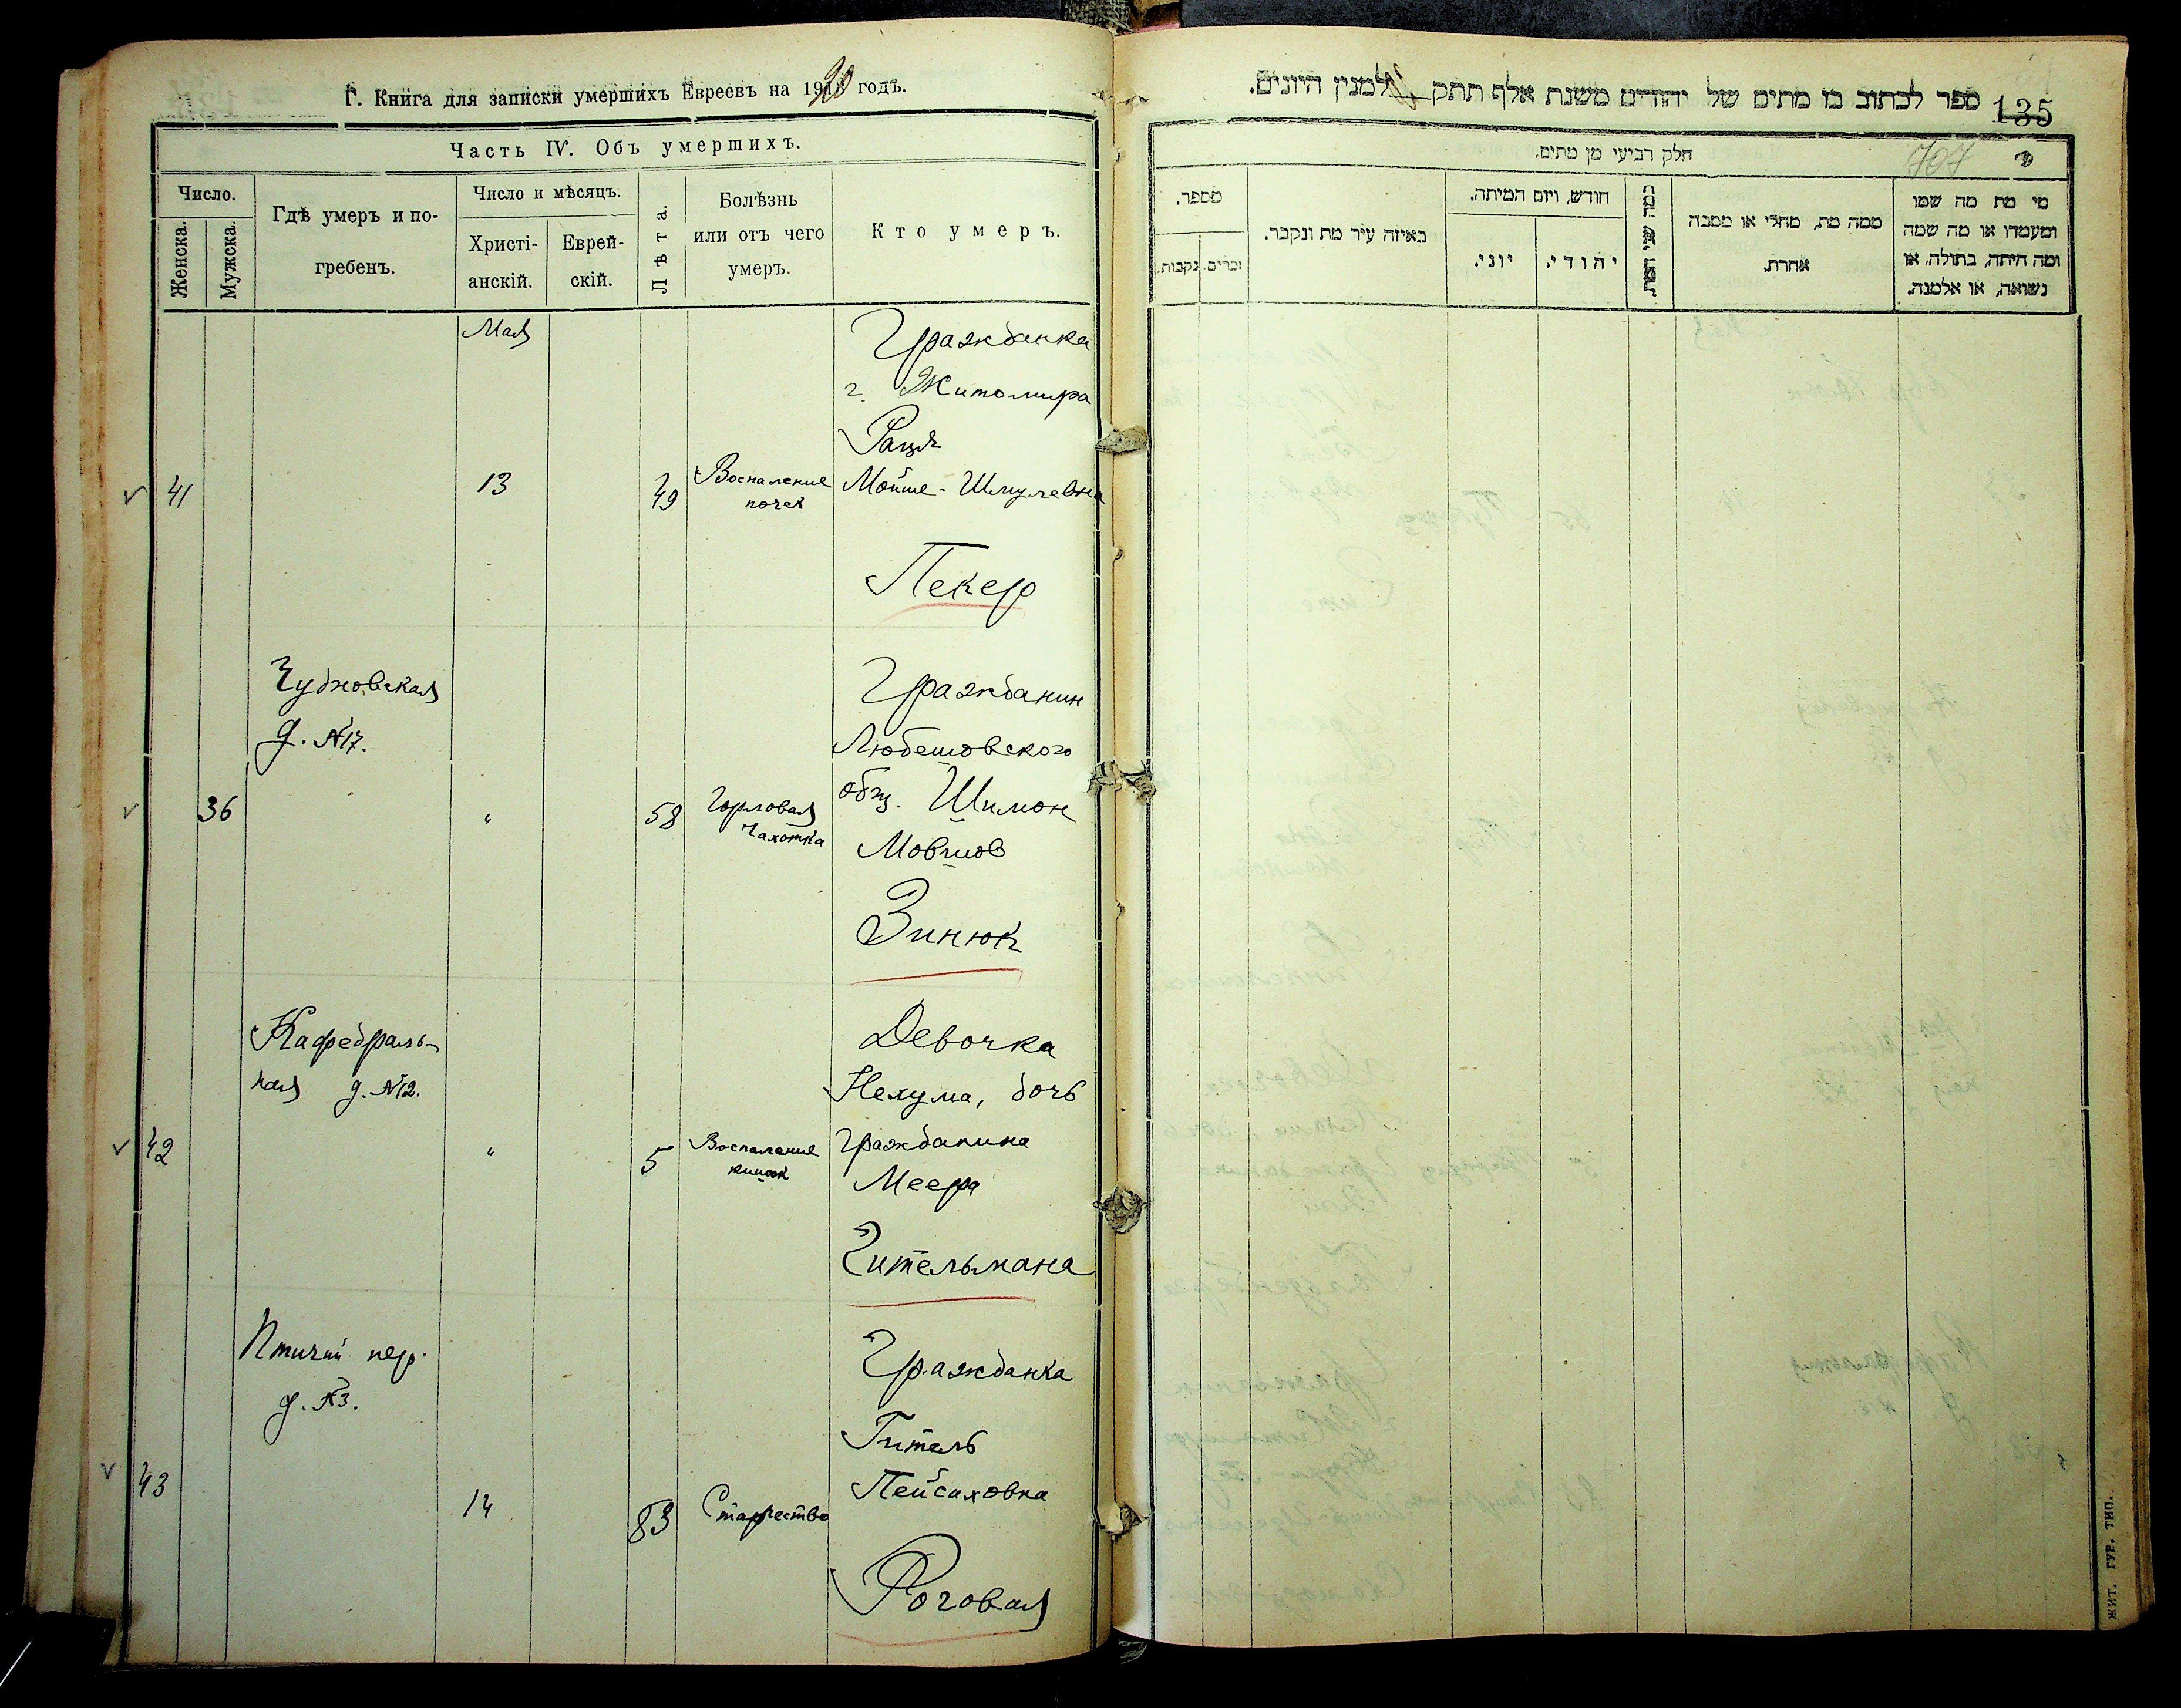 Г. Книга для записки умершихъ Евреевъ на 1920 годъ.
Часть IV. Объ умершихъ.
Число.
Женска.
Мужска.
Гдѣ умеръ и по-
гребенъ.
Число и мѣсяцъ.
Христі-
анскій.
Еврей-
скій.
Лѣта.
Болѣзнь
или отъ чего
умеръ.
Кто умеръ.
Мая
Гражданка
г. Житомира
Рахиль
41 13 49 Воспаление Мойше-Шмулевна
почек
Пекер
Чудновская
д. №17.
Гражданин
Любешовского
общ. Шимон
36 " 58 Горловая
чахотка
Мовшов
Зинюк
Кафедраль-
ная д. №12.
Девочка
Нехума, дочь
42 " 5 Воспаление гражданина
кишок
Меера
Гительмана
Птичий пер.
д. №3.
Гражданка
Гитель
Пейсаховна
43 14 83 Старчество
Роговая
ספר לכתוב בו מתים של יהודים משנת אלף תתק למנין היונים.
135
חלק רביעי מן מתים.
707
מספר.
זכרים.
נקבות.
באיזה עיר מת ונקבר.
חודש, ויום המיתה.
יהודי.
יוני.
ממה מת, מחלי או מסבה
אחרת.
מי מת מה שמו
ומעמדו או מה שמה
ומה היתה, בתולה, או
נשואה, או אלמנה.
ЖИТ. ГУБ. ТИП.